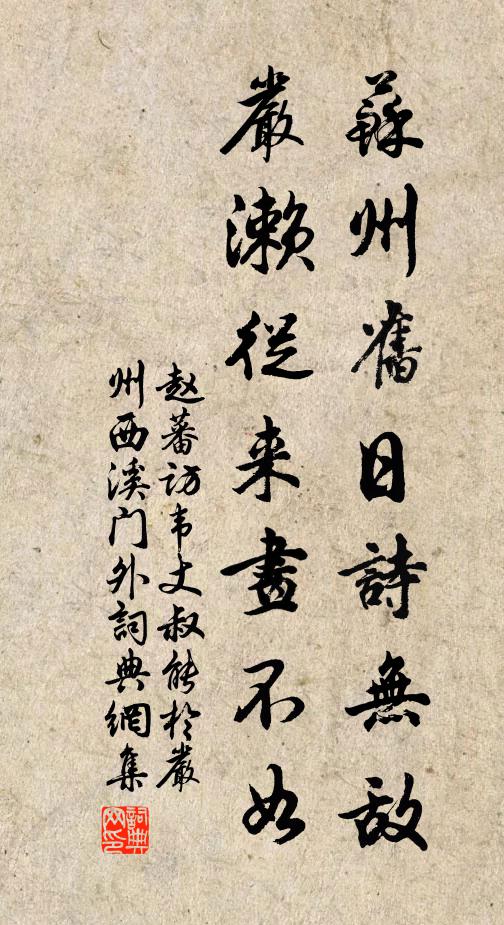 蘇州舊日詩無敵
嚴瀨從來畫不如
赵蕃访韦丈叔能於嚴
州西溪门外詞典網集
詞典网印